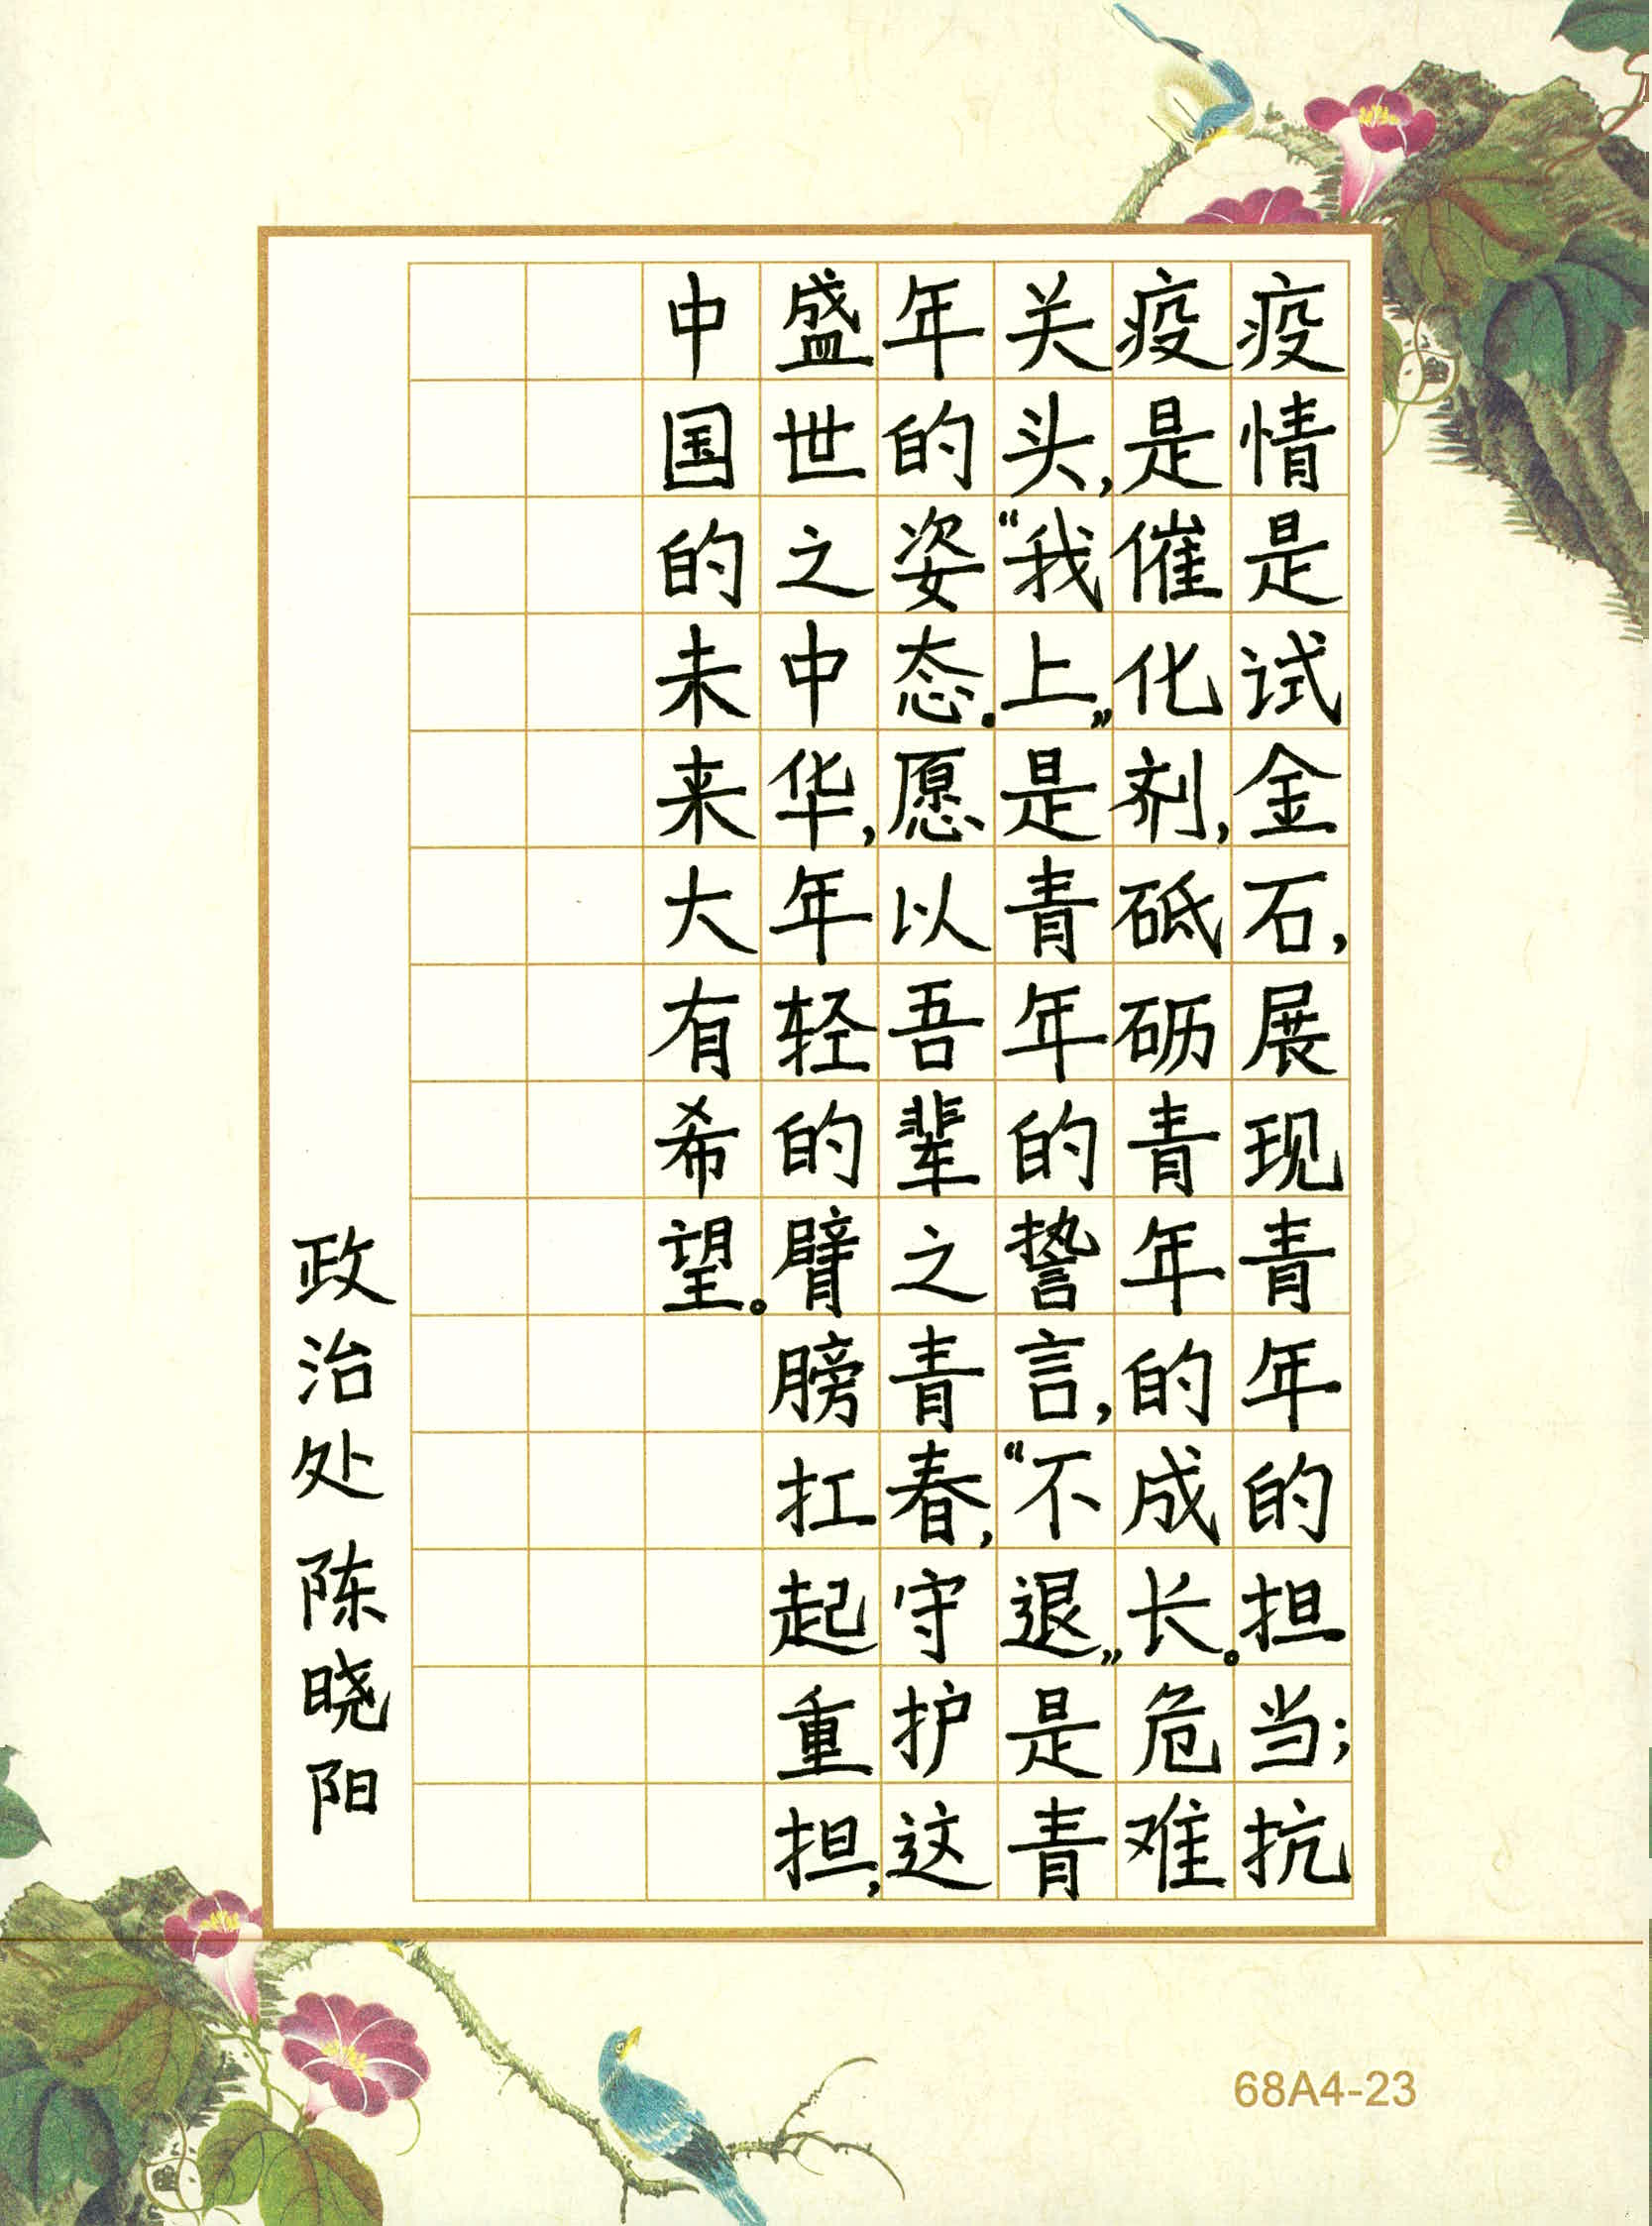 疫情是试金石,展现青年的担当;抗
疫是催化剂,砥砺青年的成长。危难
关头,“我上”是青年的誓言,“不退”是青
年的姿态.愿以吾辈之青春,守护这
盛世之中华,年轻的臂膀扛起重担,
中国的未来大有希望。
政治处 陈晓阳
68A4-23